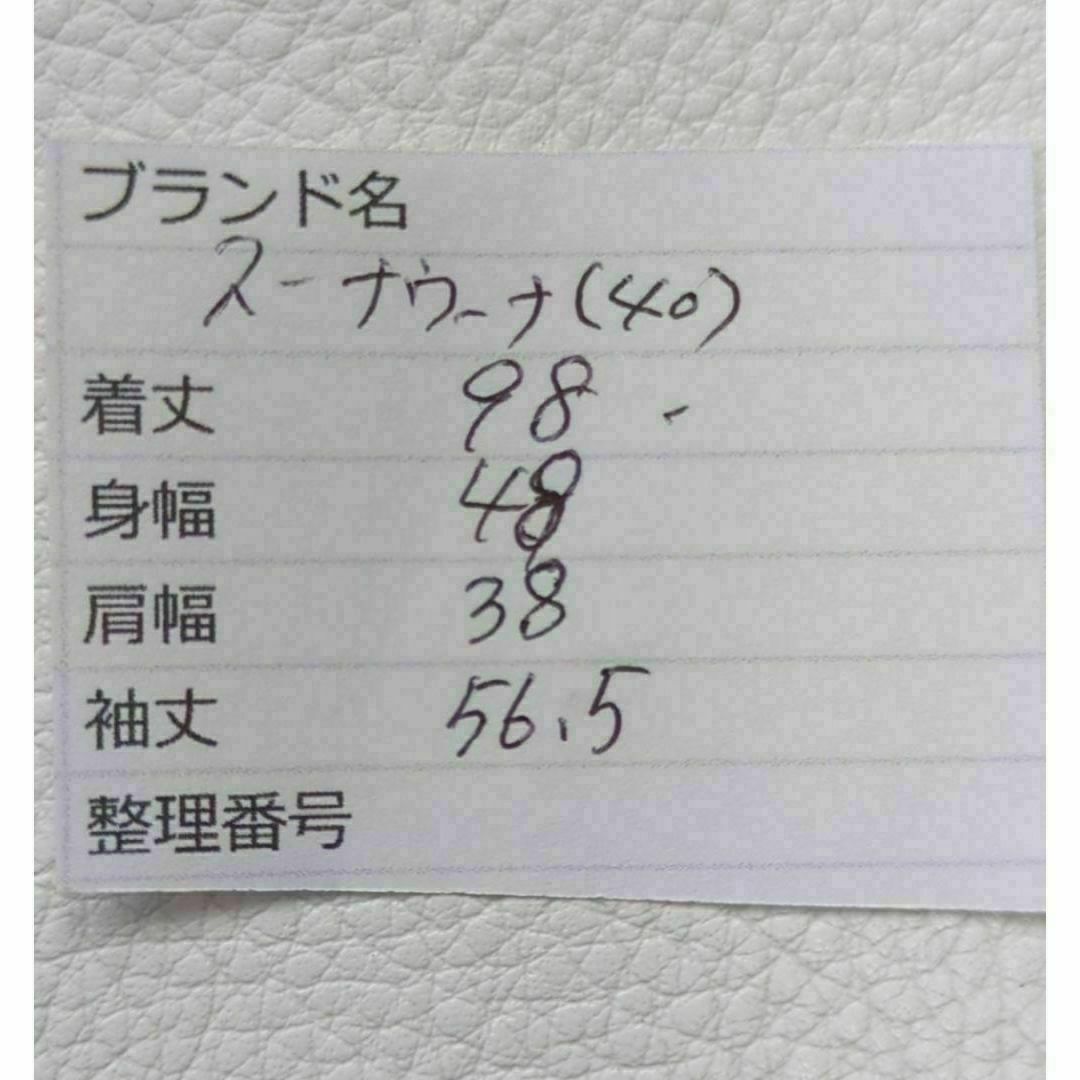 ブランド名
スーナウーナ(40)
着丈 98 -
身幅 48
肩幅 38
袖丈 56.5
整理番号